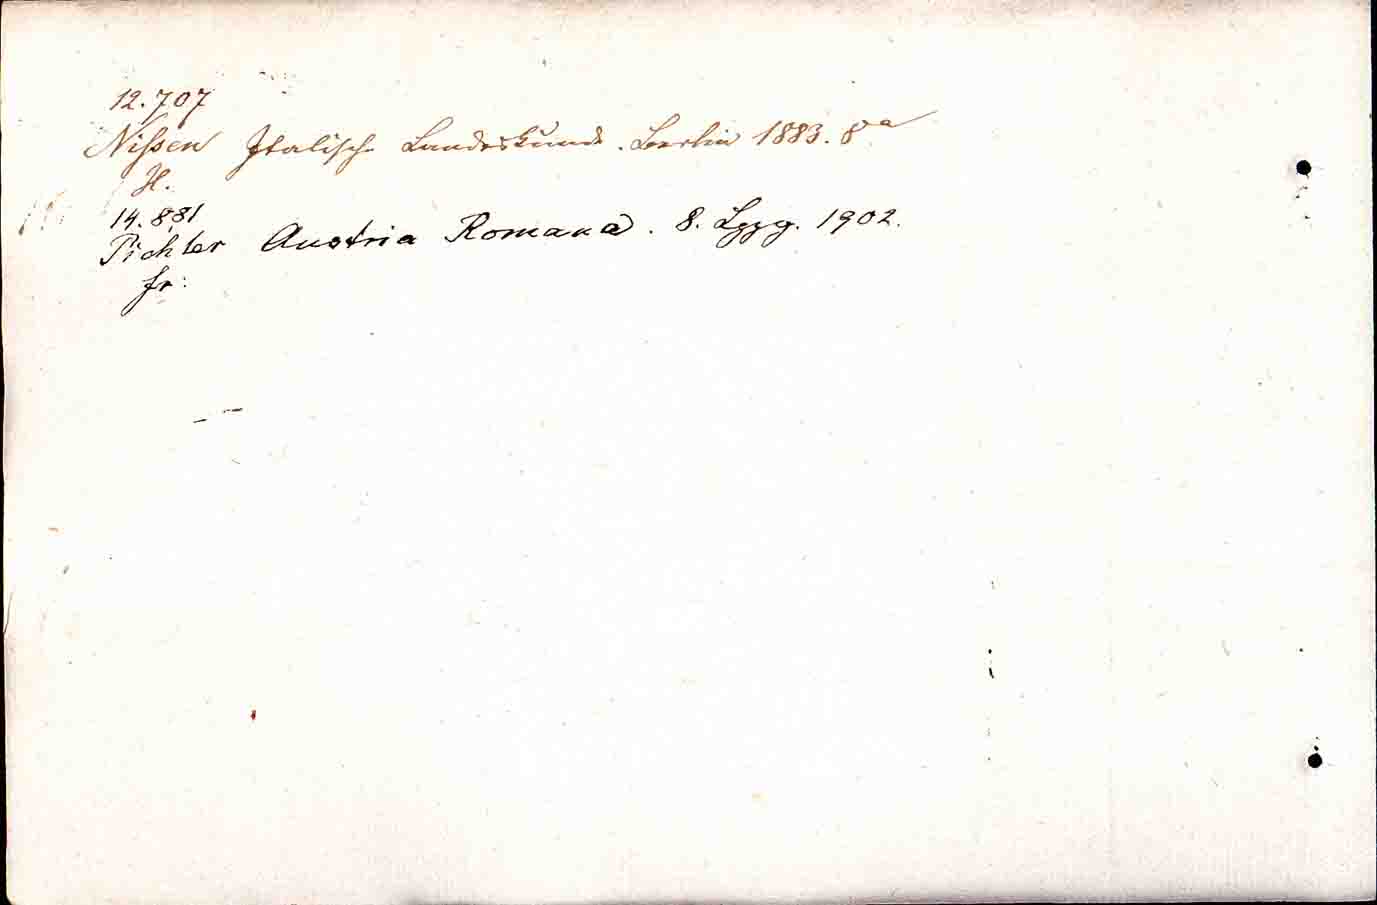 12.707
Nissen Italische Landeskunde. Berlin 1883. 8°
H.
14.881
Pichler Austria Romana. 8. Lpzg. 1902.
fr: